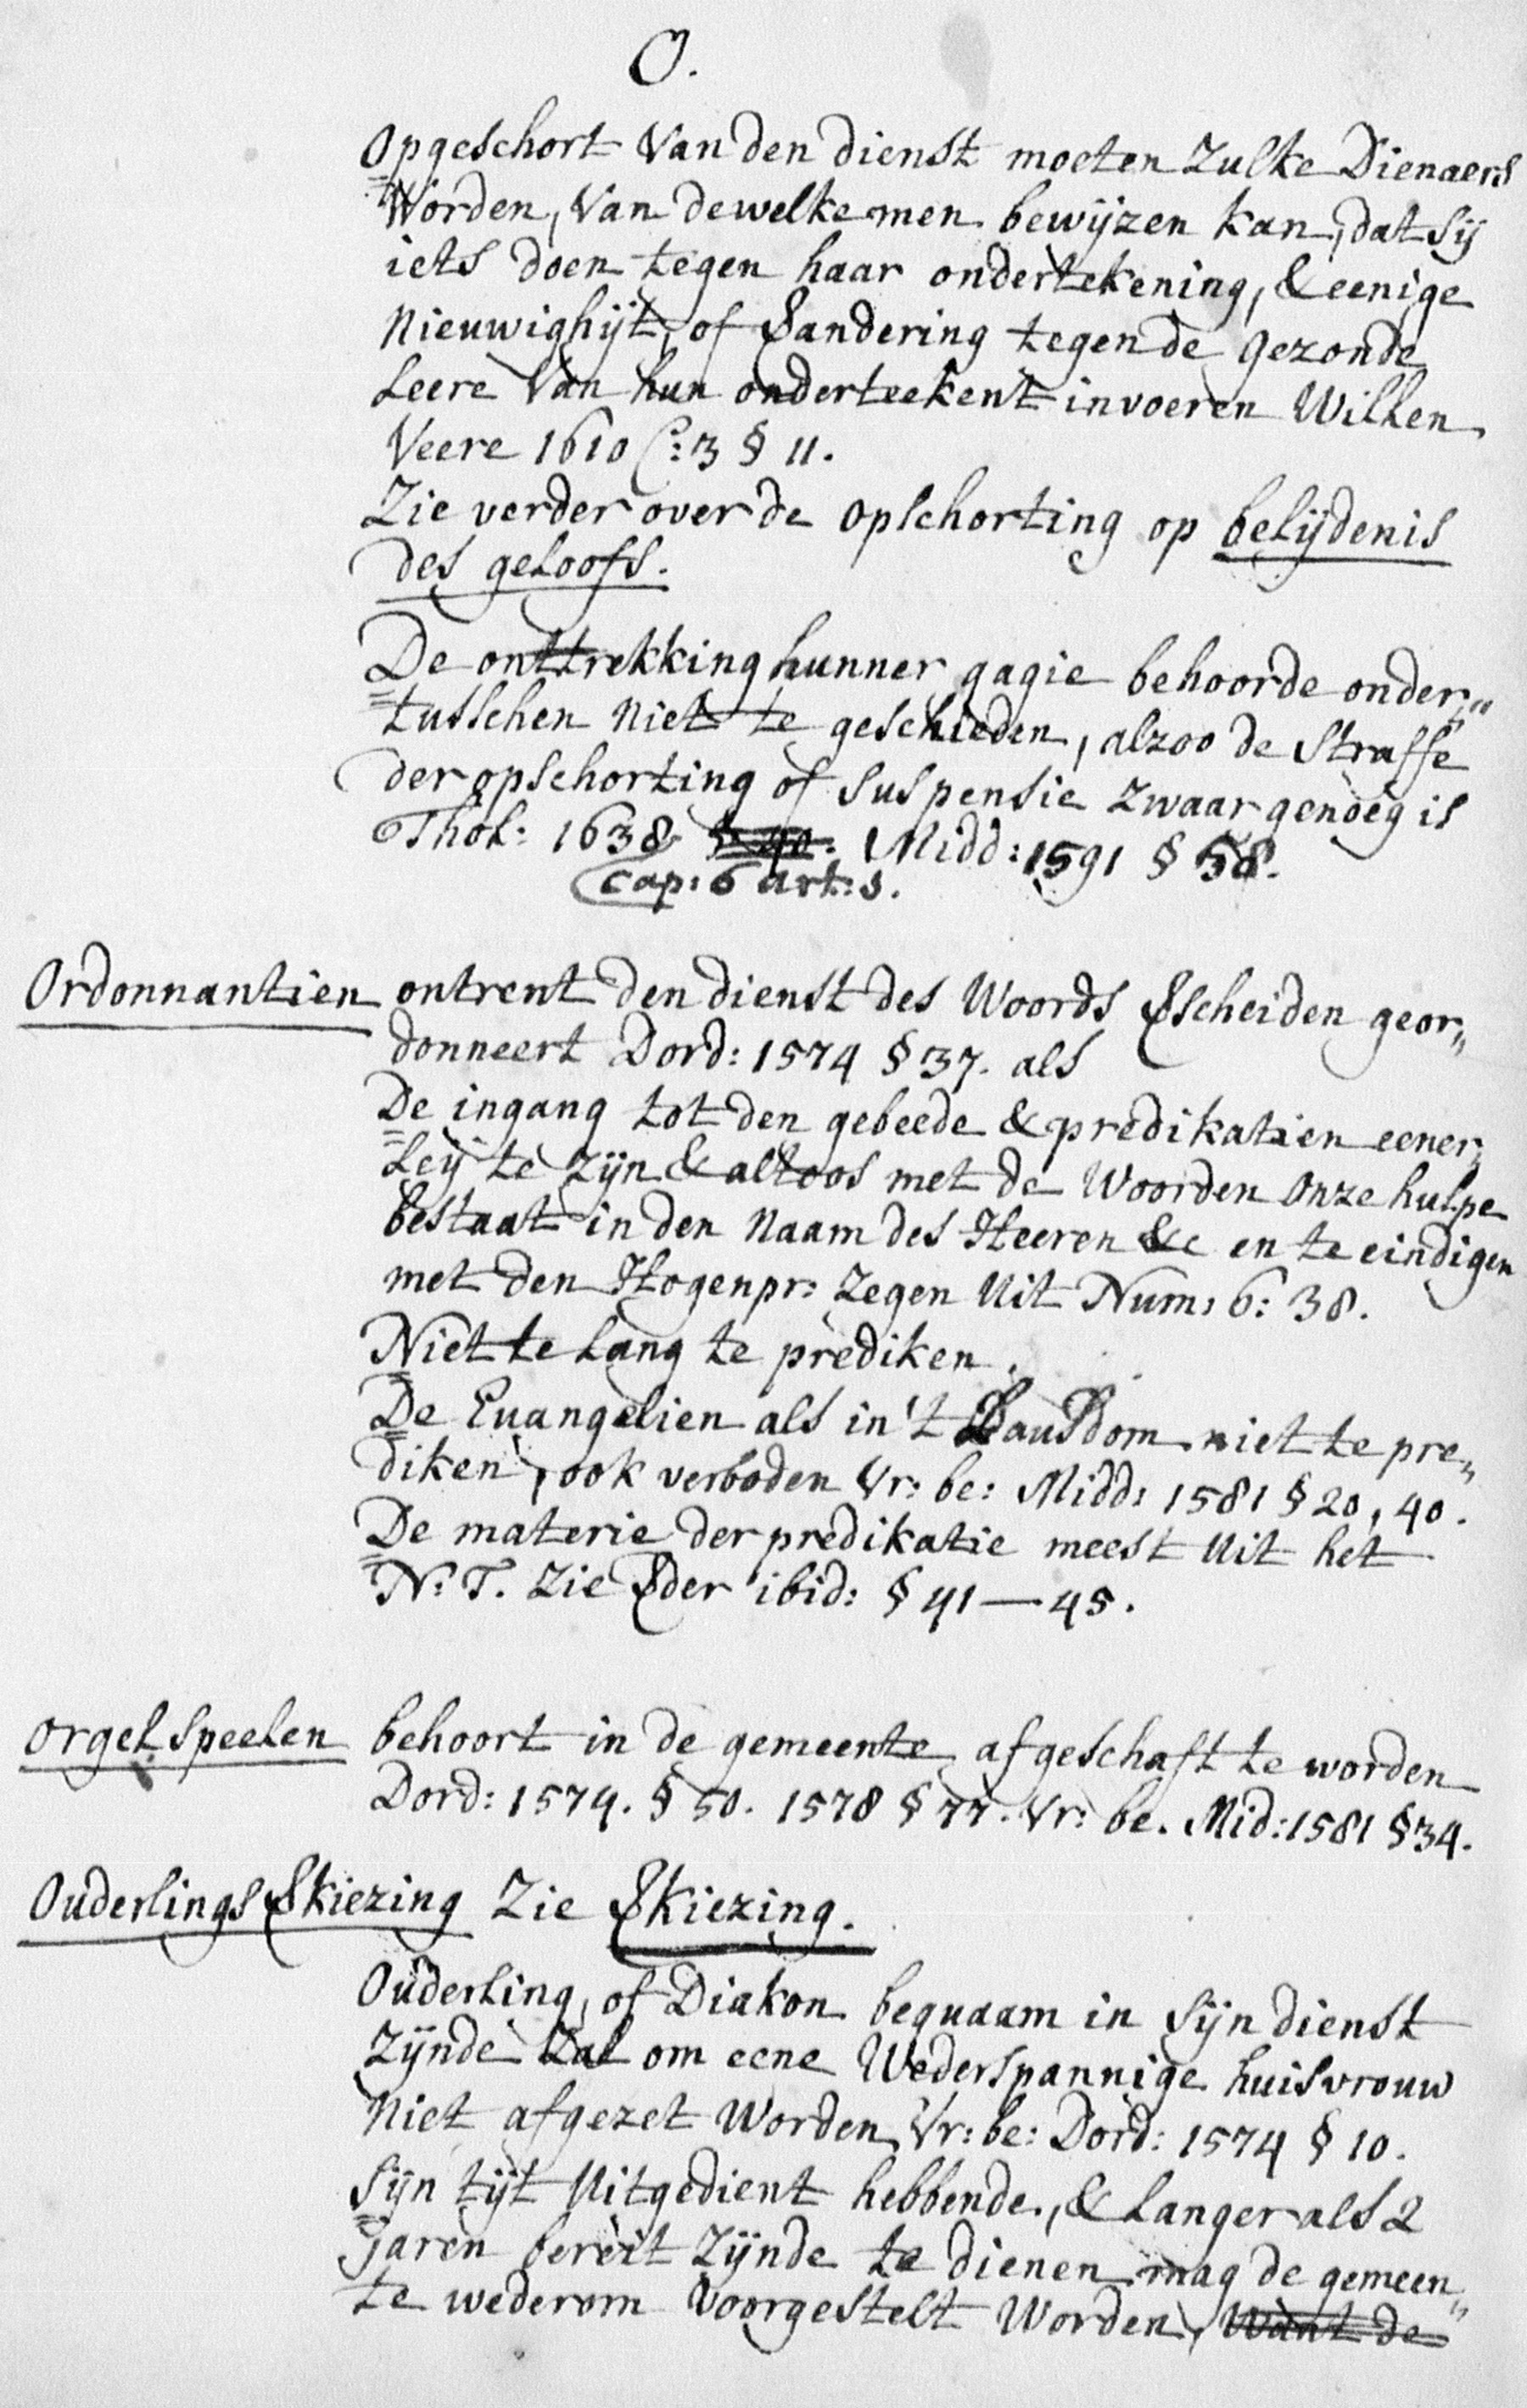 O.
Opgeschort Van den dienst moeten Zulke Dienaers
Worden, Van dewelke men bewijzen kan, dat sij
iets doen tegen haar ondertekening, & eenige
Nieuwighijt, of Verandering tegen de gezonde
Leere Van hun onderteekent invoeren Willen
Veere 1610 C: 3 § 11.
Zie verder over de opschorting op belijdenis
des geloofs.
De onttrekking hunner gagie behoorde onder„
tusschen Niet te geschieden, alzoo de Straffe
der opschorting of suspensie zwaar genoeg is
Thol: 1638 § 40. Midd: 1591 § 58.
Cap: 6 art: s.
Ordonnantien ontrent den dienst des Woords Verscheiden geor„
donneert Dord: 1574 § 37. als
De ingang tot den gebeede & predikatien eener„
Leij te zijn & altoos met de Woorden Onze hulpe
bestaat in den Naam des Heeren &c en te eindigen
met den Hogenpr: Zegen Uit Num: 6: 38.
Niet te Lang te prediken.
De Euangelien als in 't Pausdom niet te pre„
diken, ook verboden Vr: be: Midd: 1581 § 20, 40.
De materie der predikatie meest Uit het
N: T. Zie Verder ibid: § 41—45.
Orgel speelen behoort in de gemeente afgeschaft te worden
Dord: 1574. § 50. 1578 § 77. Vr: be. Mid: 1581 § 34.
Ouderlings Verkiezing Zie Verkiezing.
Ouderling, of Diakon bequaam in sijn dienst
Zijnde Zal om eene Wederspannige huisvrouw
Niet afgezet Worden, Vr: be: Dord: 1574 § 10.
Sijn tijt Uitgedient hebbende, & Langer als 2
Jaren bereit Zijnde te dienen mag de gemeen„
te wederom Voorgestelt Worden, Want de